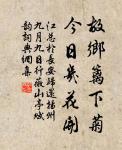 故鄉籬下菊
今日幾花開
江总於長安歸還揚州
九月九日行薇山亭賦
韻詞典網集